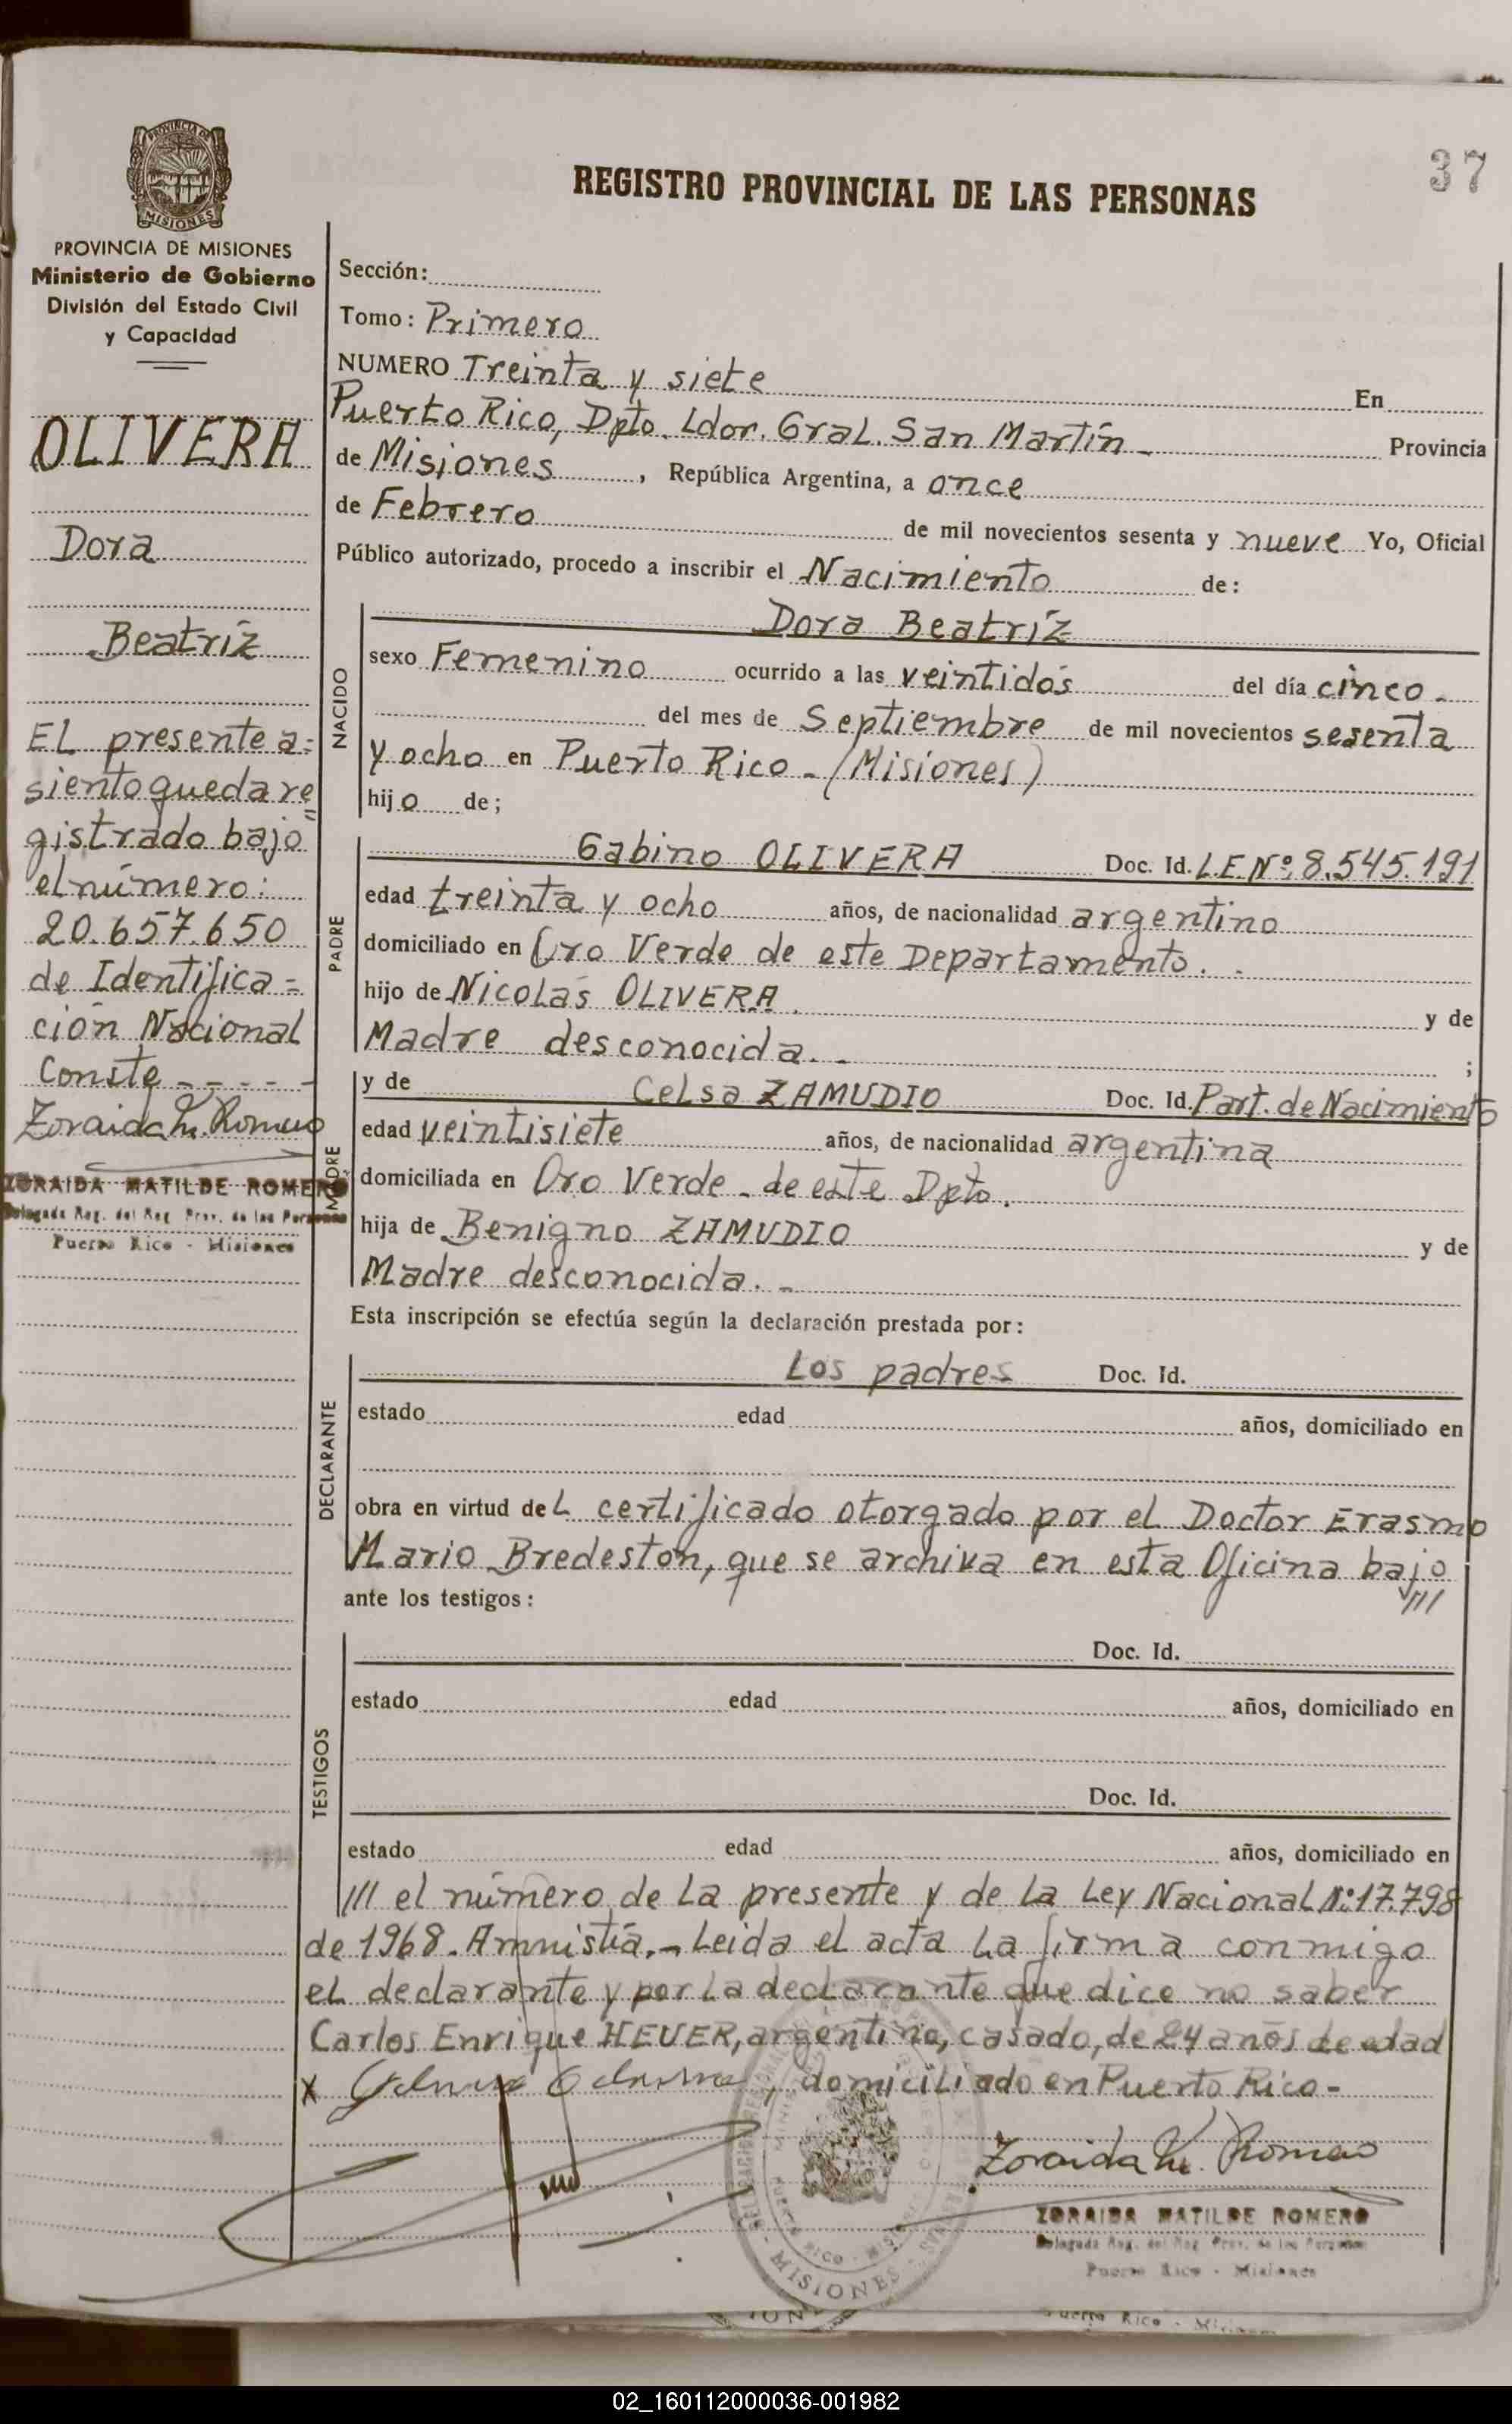 37
REGISTRO PROVINCIAL DE LAS PERSONAS
PROVINCIA DE
MISIONES
PROVINCIA DE MISIONES
Ministerio de Gobierno
División del Estado Civil
y Capacidad
OLIVERA
Dora
Beatríz
El presente a=
siento queda re
gistrado bajo
el número:
20.657.650
de Identifica=
ción Nacional
Conste - - - - -
Zoraida M. Romero
ZORAIDA MATILDE ROMERO
Delegada Reg. del Reg. Prov. de las Personas
Puerto Rico - Misiones
Sección:
Tomo: Primero
NUMERO Treinta y siete En
Puerto Rico, Dpto. Ldor. Gral. San Martín - Provincia
de Misiones, República Argentina, a once
de Febrero de mil novecientos sesenta y nueve Yo, Oficial
Público autorizado, procedo a inscribir el Nacimiento de:
NACIDO
Dora Beatríz
sexo Femenino ocurrido a las veintidós del día cinco -
del mes de Septiembre de mil novecientos sesenta
y ocho en Puerto Rico - (Misiones)
hijo de;
PADRE
Gabino OLIVERA Doc. Id. L.E.Nº: 8.545.191
edad treinta y ocho años, de nacionalidad argentino
domiciliado en Oro Verde de este Departamento. -
hijo de Nicolás OLIVERA. y de
Madre desconocida. - ;
MADRE
y de Celsa ZAMUDIO Doc. Id. Part. de Nacimiento
edad veintisiete años, de nacionalidad argentina
domiciliada en Oro Verde - de este Dpto.
hija de Benigno ZAMUDIO y de
Madre desconocida. -
Esta inscripción se efectúa según la declaración prestada por:
DECLARANTE
Los padres Doc. Id.
estado edad años, domiciliado en
obra en virtud del certificado otorgado por el Doctor Erasmo
Mario Bredeston, que se archiva en esta Oficina bajo
///
ante los testigos:
TESTIGOS
Doc. Id.
estado edad años, domiciliado en
Doc. Id.
estado edad años, domiciliado en
/// el número de la presente y de la Ley Nacional Nº: 17.798
de 1968. Amnistía. - Leida el acta la firma conmigo
el declarante y por la declarante que dice no saber
Carlos Enrique HEUER, argentino, casado, de 24 años de edad
x , domiciliado en Puerto Rico -
Zoraida M. Romero
ZORAIDA MATILDE ROMERO
Delegada Reg. del Reg. Prov. de las Personas
Puerto Rico - Misiones
MISIONES
Puerto Rico - Misiones
02_160112000036-001982